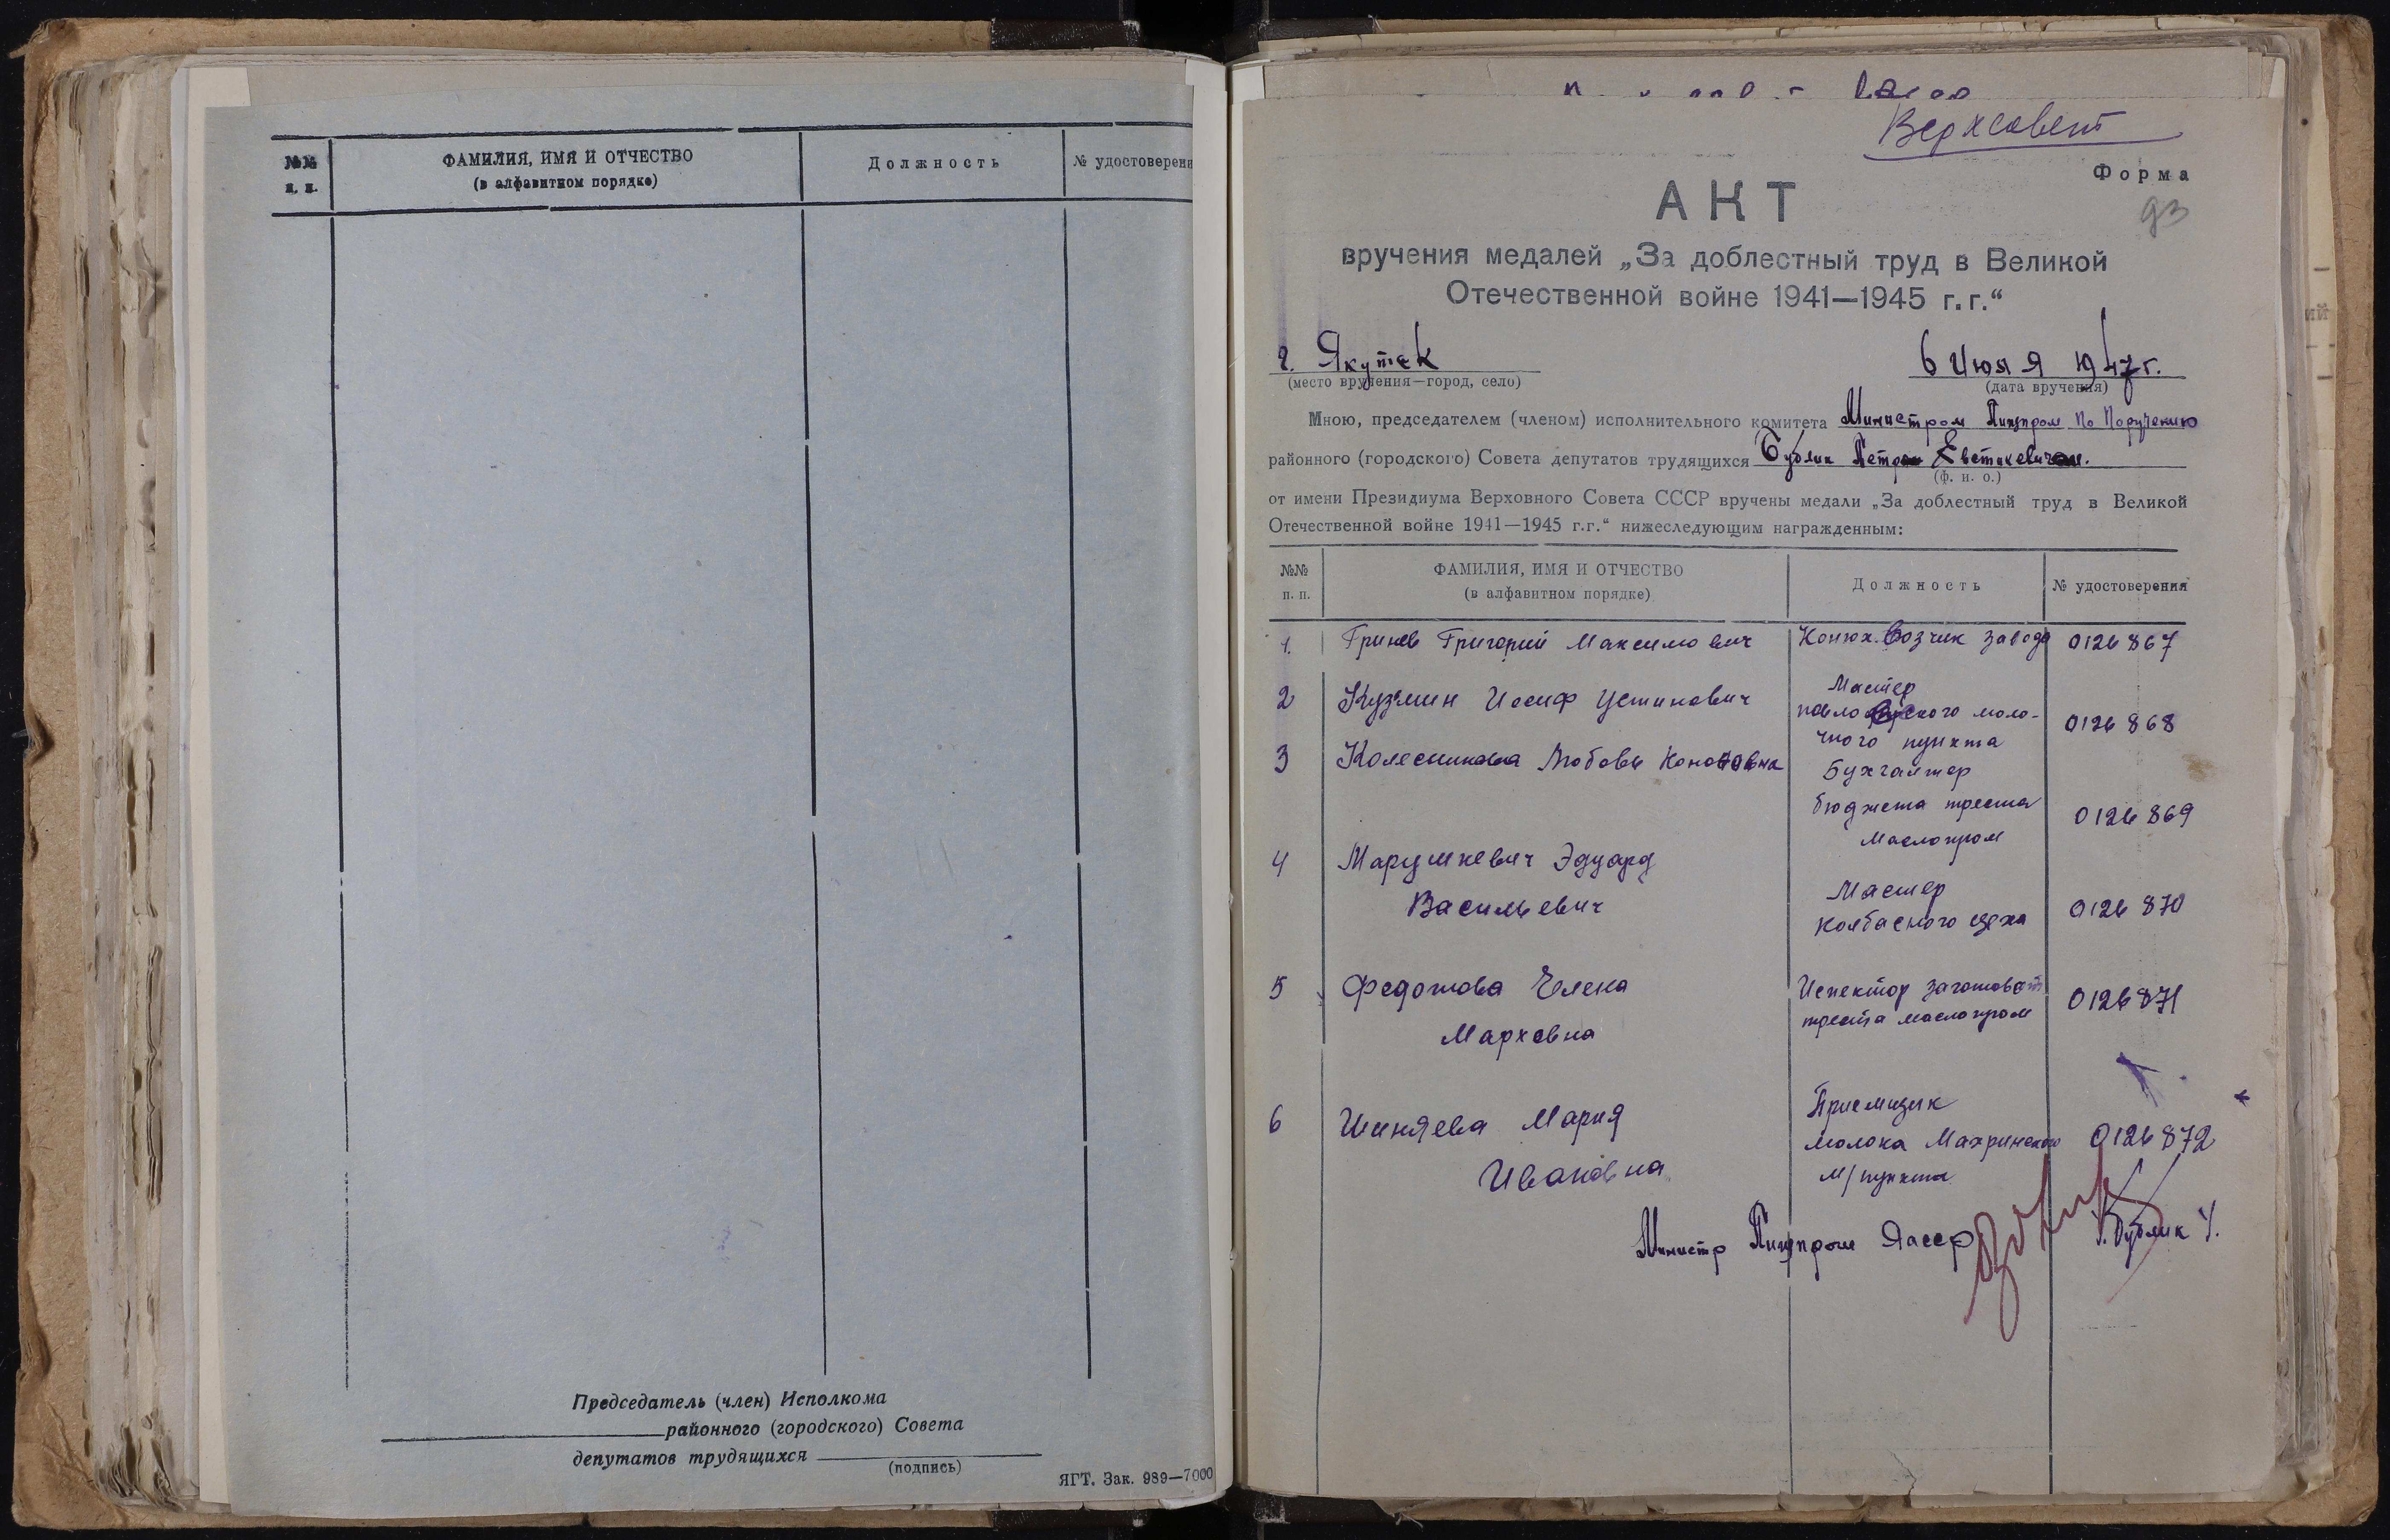 №№
п. п.
ФАМИЛИЯ, ИМЯ И ОТЧЕСТВО
(в алфавитном порядке)
Должность
№ удостоверени
Председатель (член) Исполкома
районного (городского) Совета
депутатов трудящихся
(подпись)
ЯГТ. Зак. 989—7000
Верхсовет
Форма
93
АКТ
вручения медалей „За доблестный труд в Великой
Отечественной войне 1941—1945 г.г.“
г. Якутск
6 Июля 1947 г.
(место вручения—город, село)
(дата вручения)
Мною, председателем (членом) исполнительного комитета Министром Пищпром по Поручению
районного (городского) Совета депутатов трудящихся Бублик Петром
(ф. и. о.)
от имени Президиума Верховного Совета СССР вручены медали „За доблестный труд в Великой
Отечественной войне 1941—1945 г.г.“ нижеследующим награжденным:
№№
п. п.
ФАМИЛИЯ, ИМЯ И ОТЧЕСТВО
(в алфавитном порядке)
Должность
№ удостоверения
1. Гринев Григорий Максимович Конюх-возчик завода 0126867
2 Кузьмин Иосиф Устинович Мастер
ского моло-
чного пункта 0126868
3 Колесникова Любовь Кононовна Бухгалтер
бюджета треста
Маслопром 0126869
4 Марушкевич Эдуард
Васильевич
Мастер
колбасного цеха 0126870
5 Федотова Елена
Марковна
Испектор заготоват
треста маслопром 0126871
6 Шиняева Мария
Ивановна
Приемщик
молока Махринского
м/пункта 0126872
Министр Пищпром Яасср
Бублик